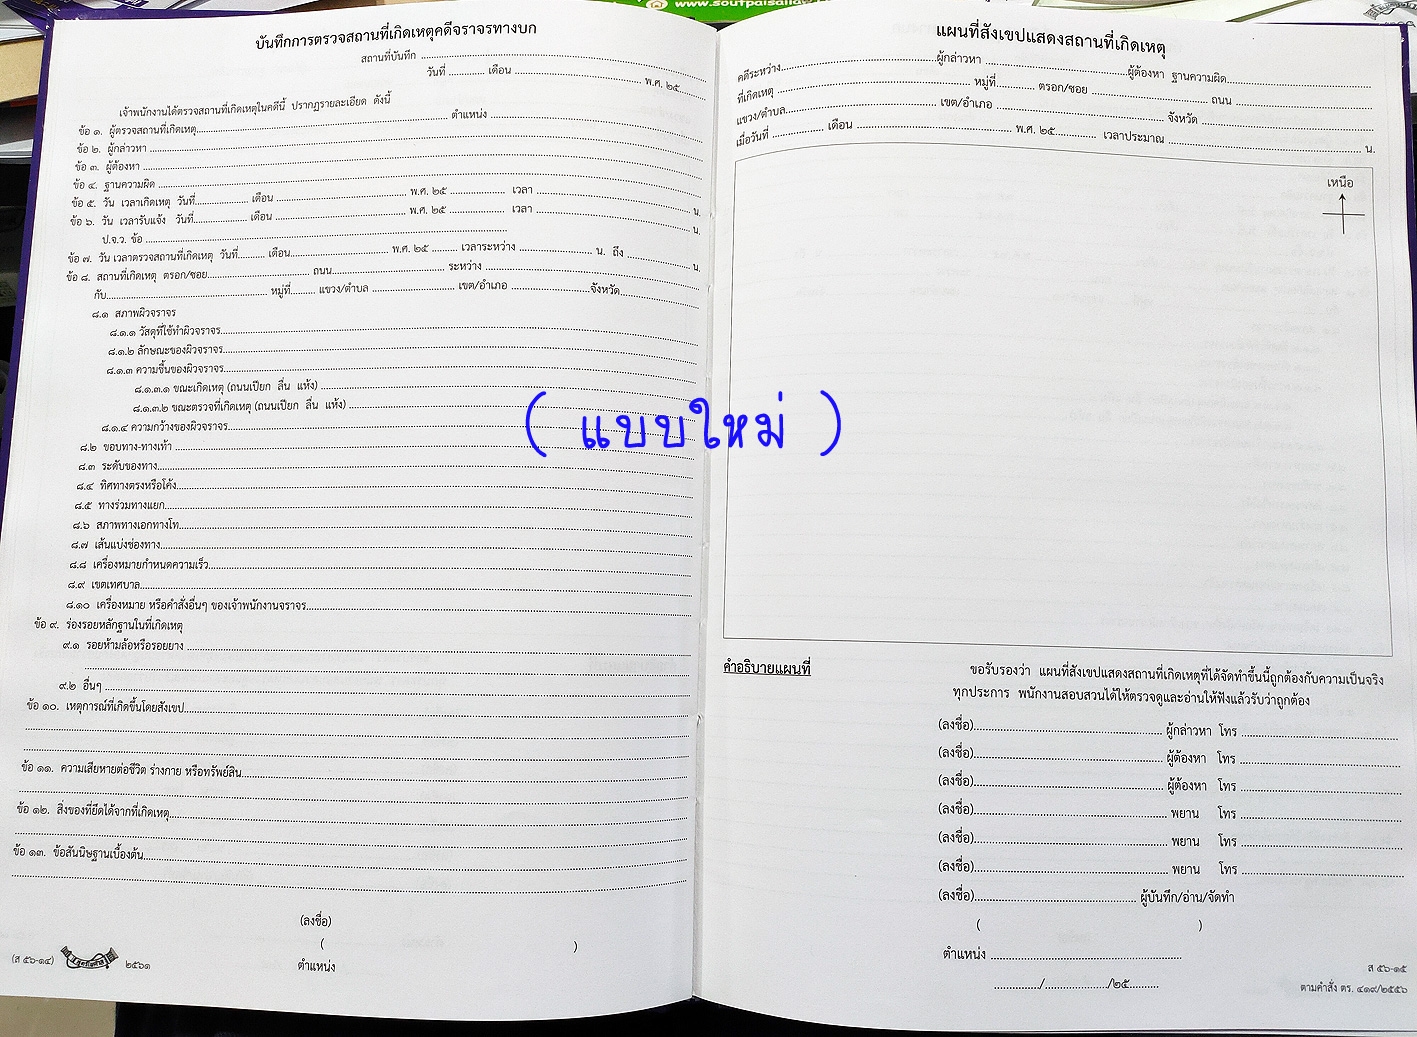 www.soutpaisallaw.
บันทึกการตรวจสถานที่เกิดเหตุคดีจราจรทางบก
สถานที่บันทึก
วันที่ ............ เดือน ............ พ.ศ. ๒๕........
เจ้าพนักงานได้ตรวจสถานที่เกิดเหตุในคดีนี้ ปรากฏรายละเอียด ดังนี้
ข้อ ๑. ผู้ตรวจสถานที่เกิดเหตุ............ ตำแหน่ง ............
ข้อ ๒. ผู้กล่าวหา ............
ข้อ ๓. ผู้ต้องหา ............
ข้อ ๔. ฐานความผิด ............
ข้อ ๕. วัน เวลาเกิดเหตุ วันที่............ เดือน ............ พ.ศ. ๒๕ ............ เวลา ............ น.
ข้อ ๖. วัน เวลารับแจ้ง วันที่............ เดือน ............ พ.ศ. ๒๕ ............ เวลา ............ น.
ป.จ.ว. ข้อ ............
ข้อ ๗. วัน เวลาตรวจสถานที่เกิดเหตุ วันที่.......... เดือน............ พ.ศ. ๒๕ .......... เวลาระหว่าง ............ น. ถึง ............ น.
ข้อ ๘. สถานที่เกิดเหตุ ตรอก/ซอย............ ถนน............ ระหว่าง ............
กับ............ หมู่ที่......... แขวง/ตำบล ............ เขต/อำเภอ ............จังหวัด............
๘.๑ สภาพผิวจราจร
๘.๑.๑ วัสดุที่ใช้ทำผิวจราจร............
๘.๑.๒ ลักษณะของผิวจราจร............
๘.๑.๓ ความชื้นของผิวจราจร............
๘.๑.๓.๑ ขณะเกิดเหตุ (ถนนเปียก ลื่น แห้ง) ............
๘.๑.๓.๒ ขณะตรวจที่เกิดเหตุ (ถนนเปียก ลื่น แห้ง) ............
๘.๑.๔ ความกว้างของผิวจราจร............
๘.๒ ขอบทาง-ทางเท้า ............
๘.๓ ระดับของทาง............
๘.๔ ทิศทางตรงหรือโค้ง............
๘.๕ ทางร่วมทางแยก............
๘.๖ สภาพทางเอกทางโท............
๘.๗ เส้นแบ่งช่องทาง............
๘.๘ เครื่องหมายกำหนดความเร็ว............
๘.๙ เขตเทศบาล............
๘.๑๐ เครื่องหมาย หรือคำสั่งอื่นๆ ของเจ้าพนักงานจราจร............
ข้อ ๙. ร่องรอยหลักฐานในที่เกิดเหตุ
๙.๑ รอยห้ามล้อหรือรอยยาง ............
๙.๒ อื่นๆ ............
ข้อ ๑๐. เหตุการณ์ที่เกิดขึ้นโดยสังเขป............
ข้อ ๑๑. ความเสียหายต่อชีวิต ร่างกาย หรือทรัพย์สิน............
ข้อ ๑๒. สิ่งของที่ยึดได้จากที่เกิดเหตุ............
ข้อ ๑๓. ข้อสันนิษฐานเบื้องต้น............
(ลงชื่อ)
( )
ตำแหน่ง
(ส ๕๖-๑๔) ๒๕๖๑
( แบบใหม่ )
แผนที่สังเขปแสดงสถานที่เกิดเหตุ
คดีระหว่าง............ผู้กล่าวหา ............ผู้ต้องหา ฐานความผิด............
ที่เกิดเหตุ ............ หมู่ที่............ ตรอก/ซอย ............ ถนน ............
แขวง/ตำบล............ เขต/อำเภอ ............ จังหวัด ............
เมื่อวันที่ ............ เดือน ............ พ.ศ. ๒๕............ เวลาประมาณ ............ น.
เหนือ
คำอธิบายแผนที่
ขอรับรองว่า แผนที่สังเขปแสดงสถานที่เกิดเหตุที่ได้จัดทำขึ้นนี้ถูกต้องกับความเป็นจริง
ทุกประการ พนักงานสอบสวนได้ให้ตรวจดูและอ่านให้ฟังแล้วรับว่าถูกต้อง
(ลงชื่อ)............ ผู้กล่าวหา โทร ............
(ลงชื่อ)............ ผู้ต้องหา โทร ............
(ลงชื่อ)............ ผู้ต้องหา โทร ............
(ลงชื่อ)............ พยาน โทร ............
(ลงชื่อ)............ พยาน โทร ............
(ลงชื่อ)............ พยาน โทร ............
(ลงชื่อ)............ ผู้บันทึก/อ่าน/จัดทำ
( )
ตำแหน่ง ............
............/............/๒๕..........
ส ๕๖-๑๕
ตามคำสั่ง ตร. ๔๑๙/๒๕๕๖